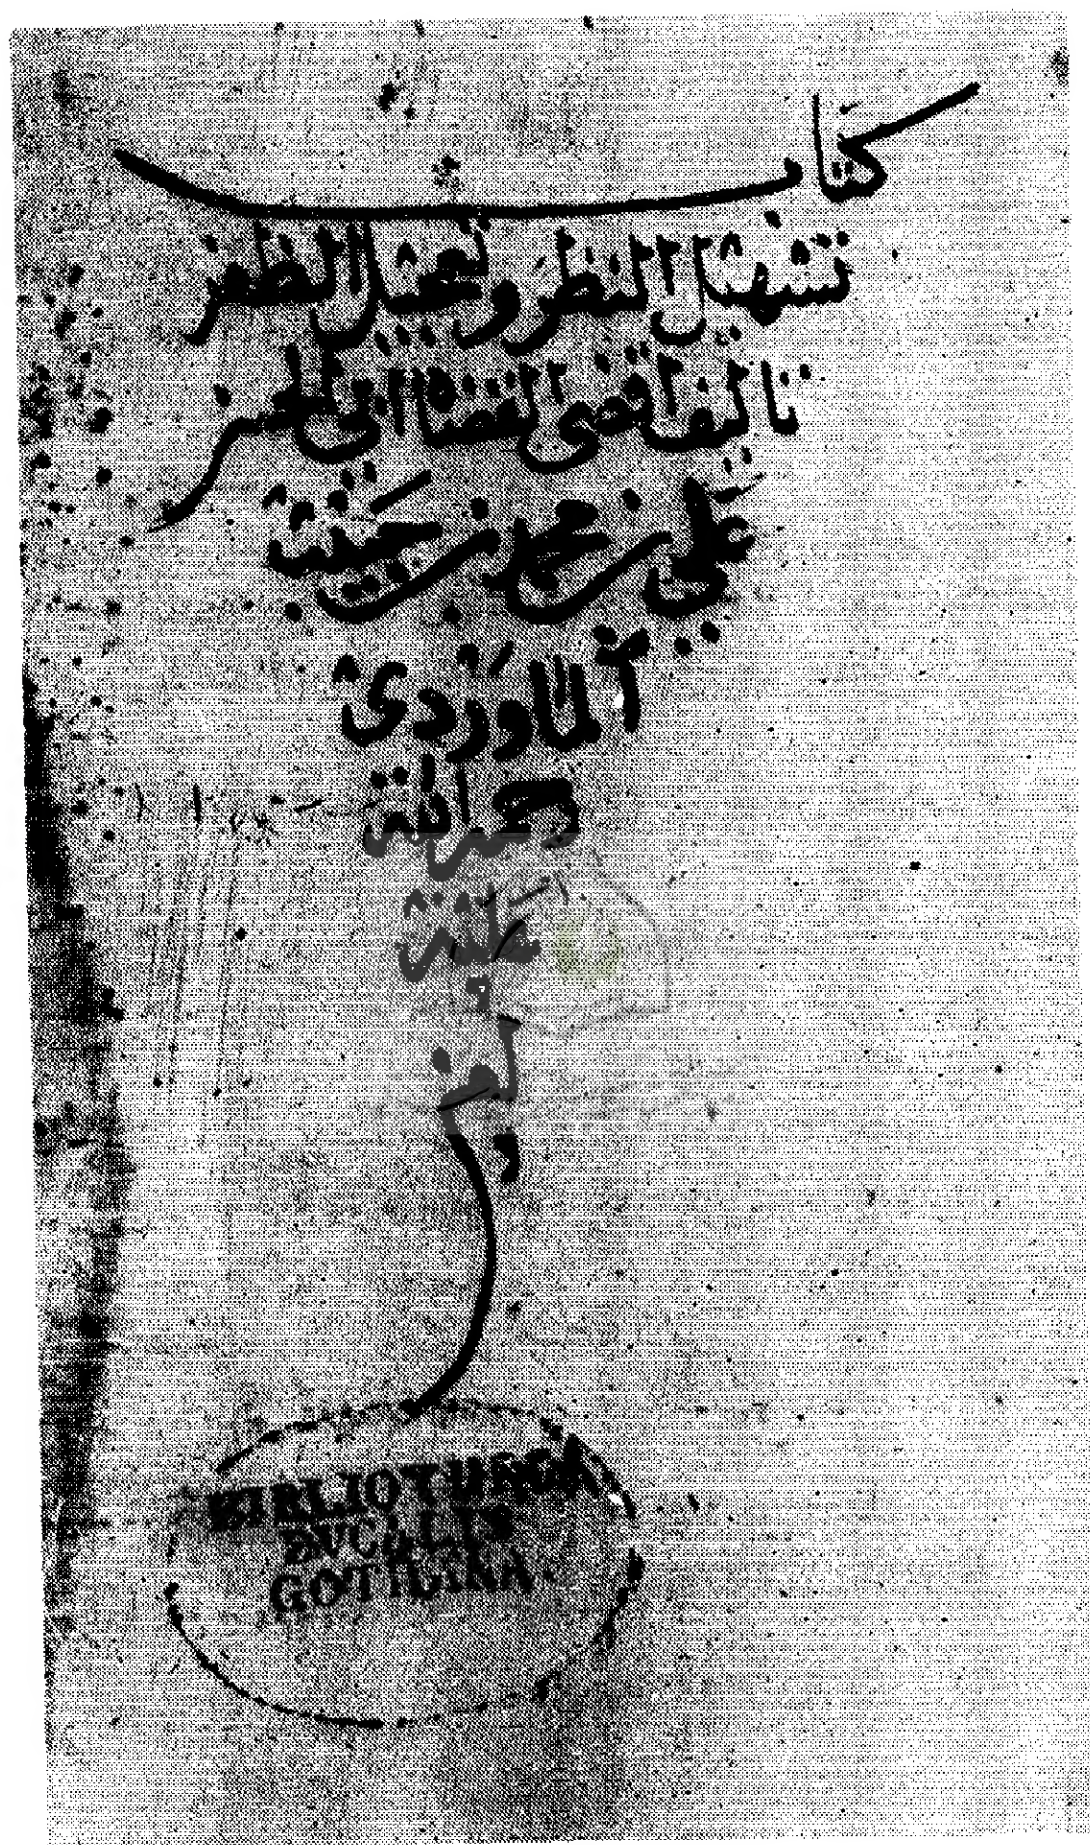 كتاب
تسهيل النظر وتعجيل الظفر
تاليف اقضى القضاة ابي الحسن
علي بن محمد بن حبيب
الماوردي
رحمة الله
عليه
BIBLIOTHECA
DVCALIS
GOTHANA.